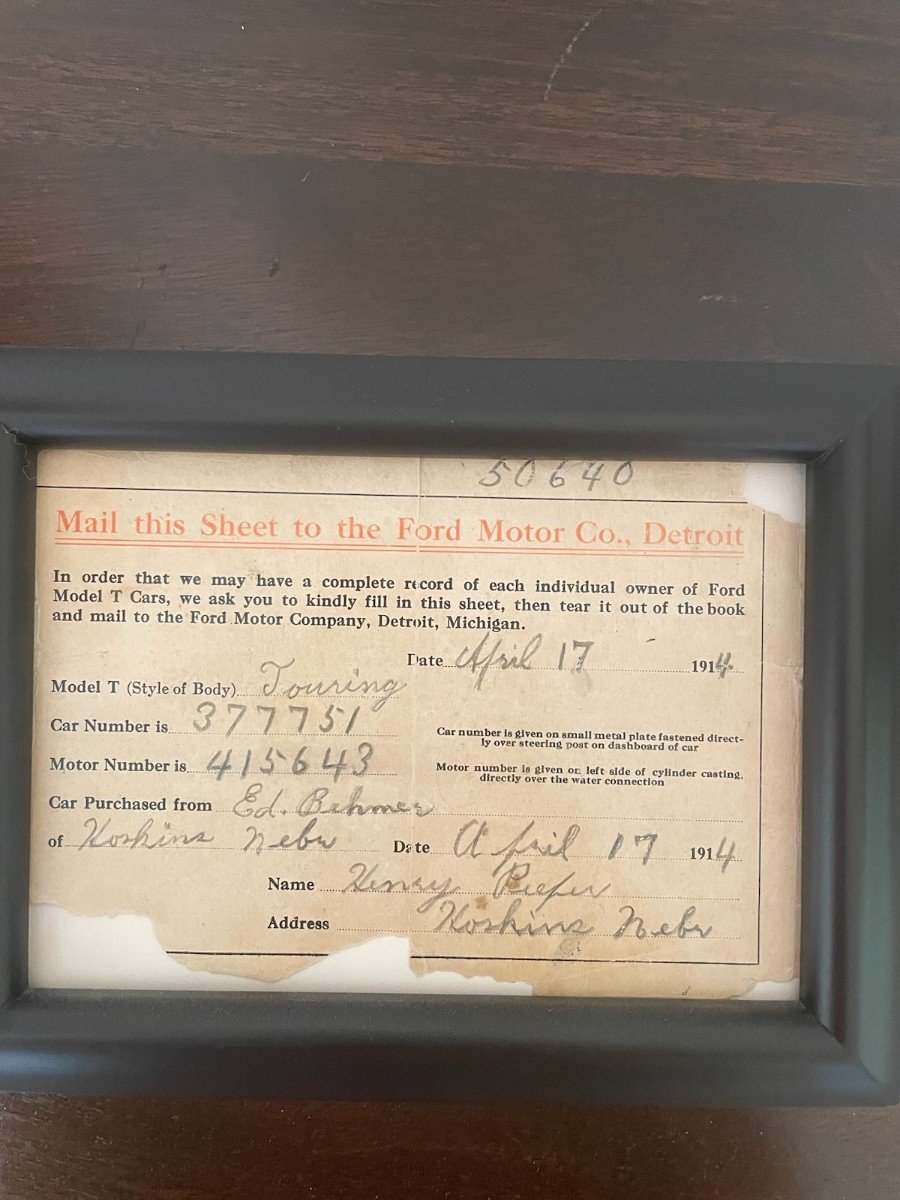 50640
Mail this Sheet to the Ford Motor Co., Detroit
In order that we may have a complete record of each individual owner of Ford
Model T Cars, we ask you to kindly fill in this sheet, then tear it out of the book
and mail to the Ford Motor Company, Detroit, Michigan.
Date April 17 1914
Model T (Style of Body) Touring
Car Number is 377751
Car number is given on small metal plate fastened direct-
ly over steering post on dashboard of car
Motor Number is 415643
Motor number is given on left side of cylinder casting,
directly over the water connection
Car Purchased from Ed. Behmer
of Hoskins Nebr Date April 17 1914
Name Henry
Address Hoskins Nebr